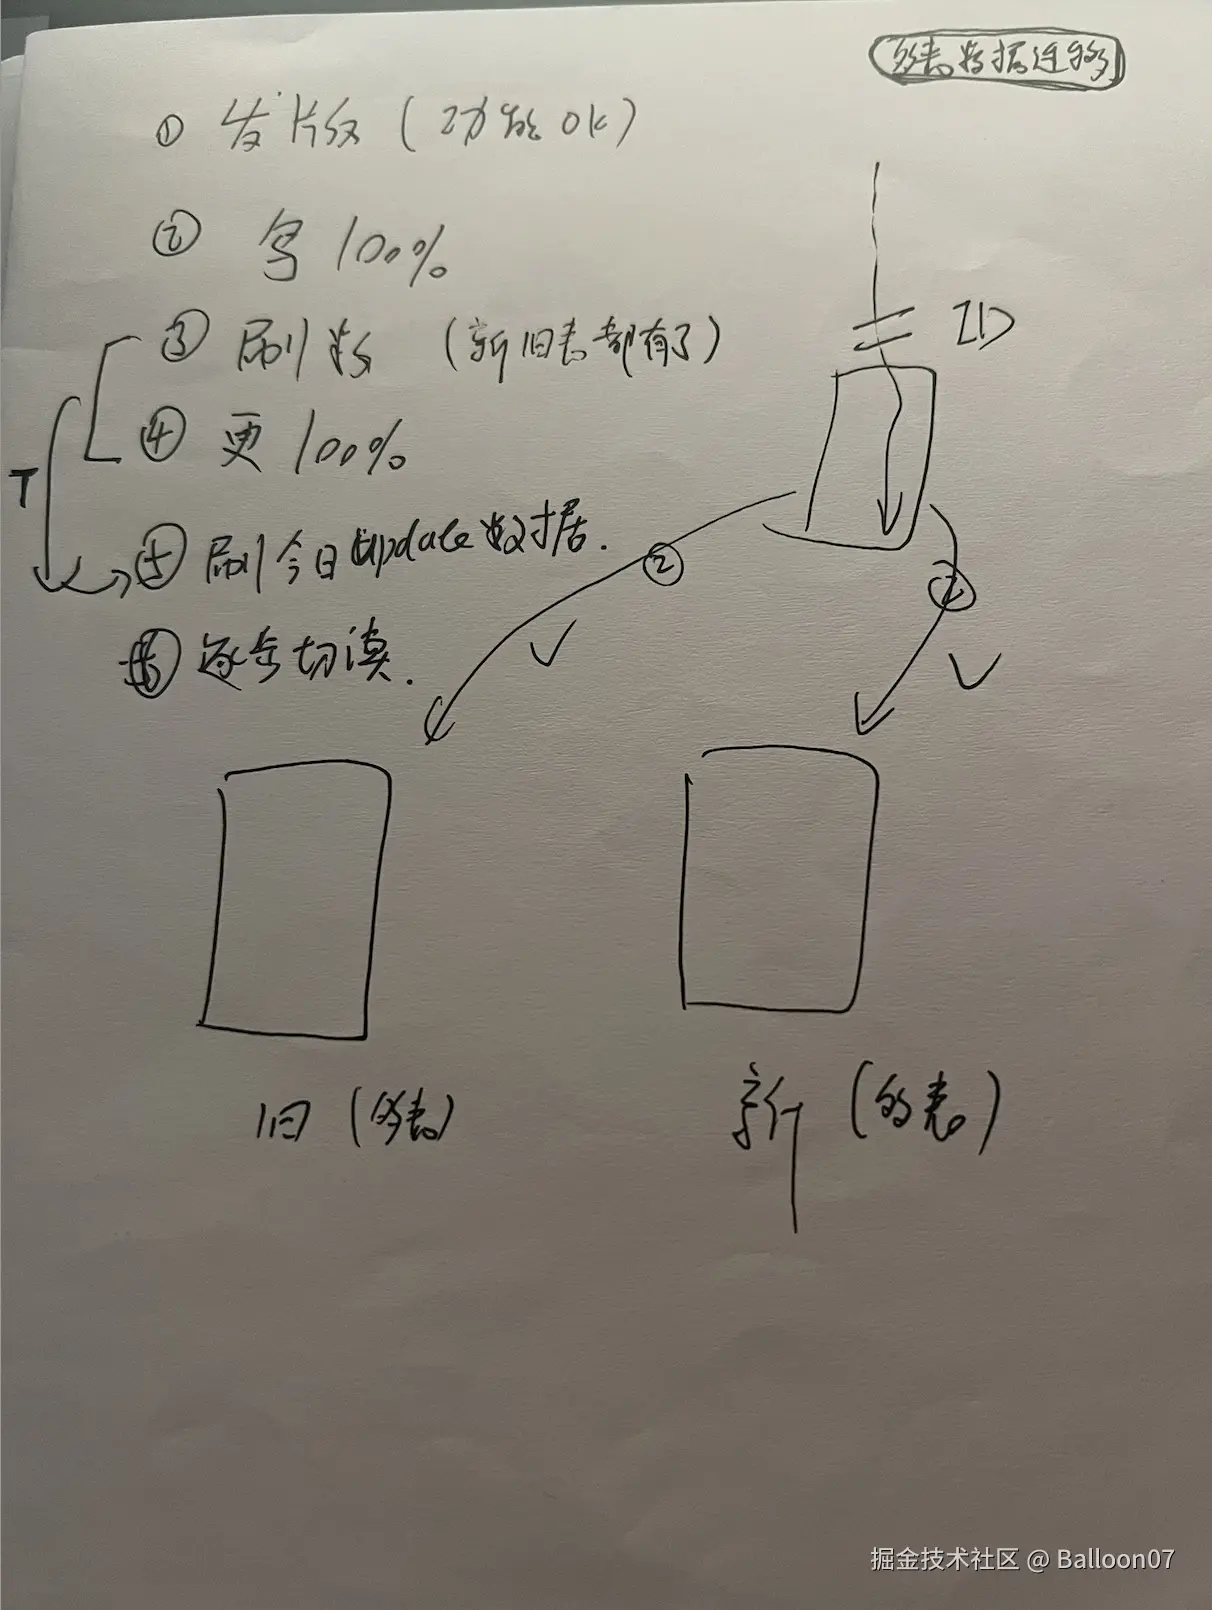 多表数据迁移
① 发版 (功能OK)
② 写 100%
③ 刷数 (新旧表都有了)
ID
④ 更 100%
T
⑤ 刷今日update数据.
②
②
⑥ 逐步切读.
旧 (多表)
新 (多表)
掘金技术社区 @ Balloon07